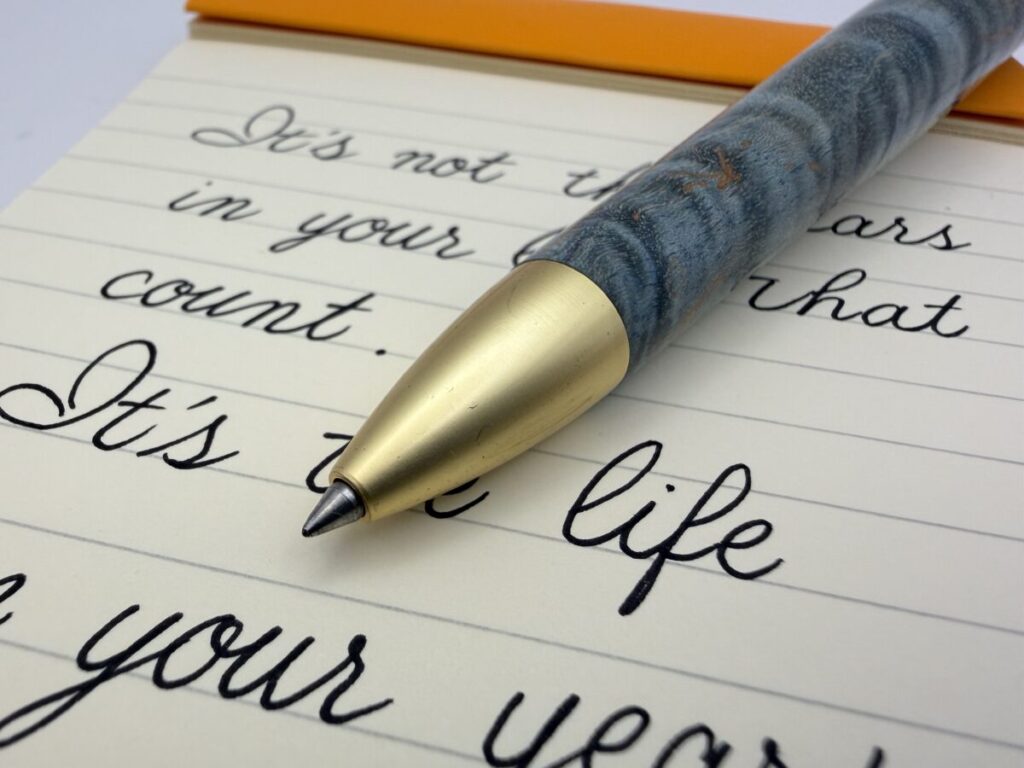 It's not
in your that
count.
It's the life
your years